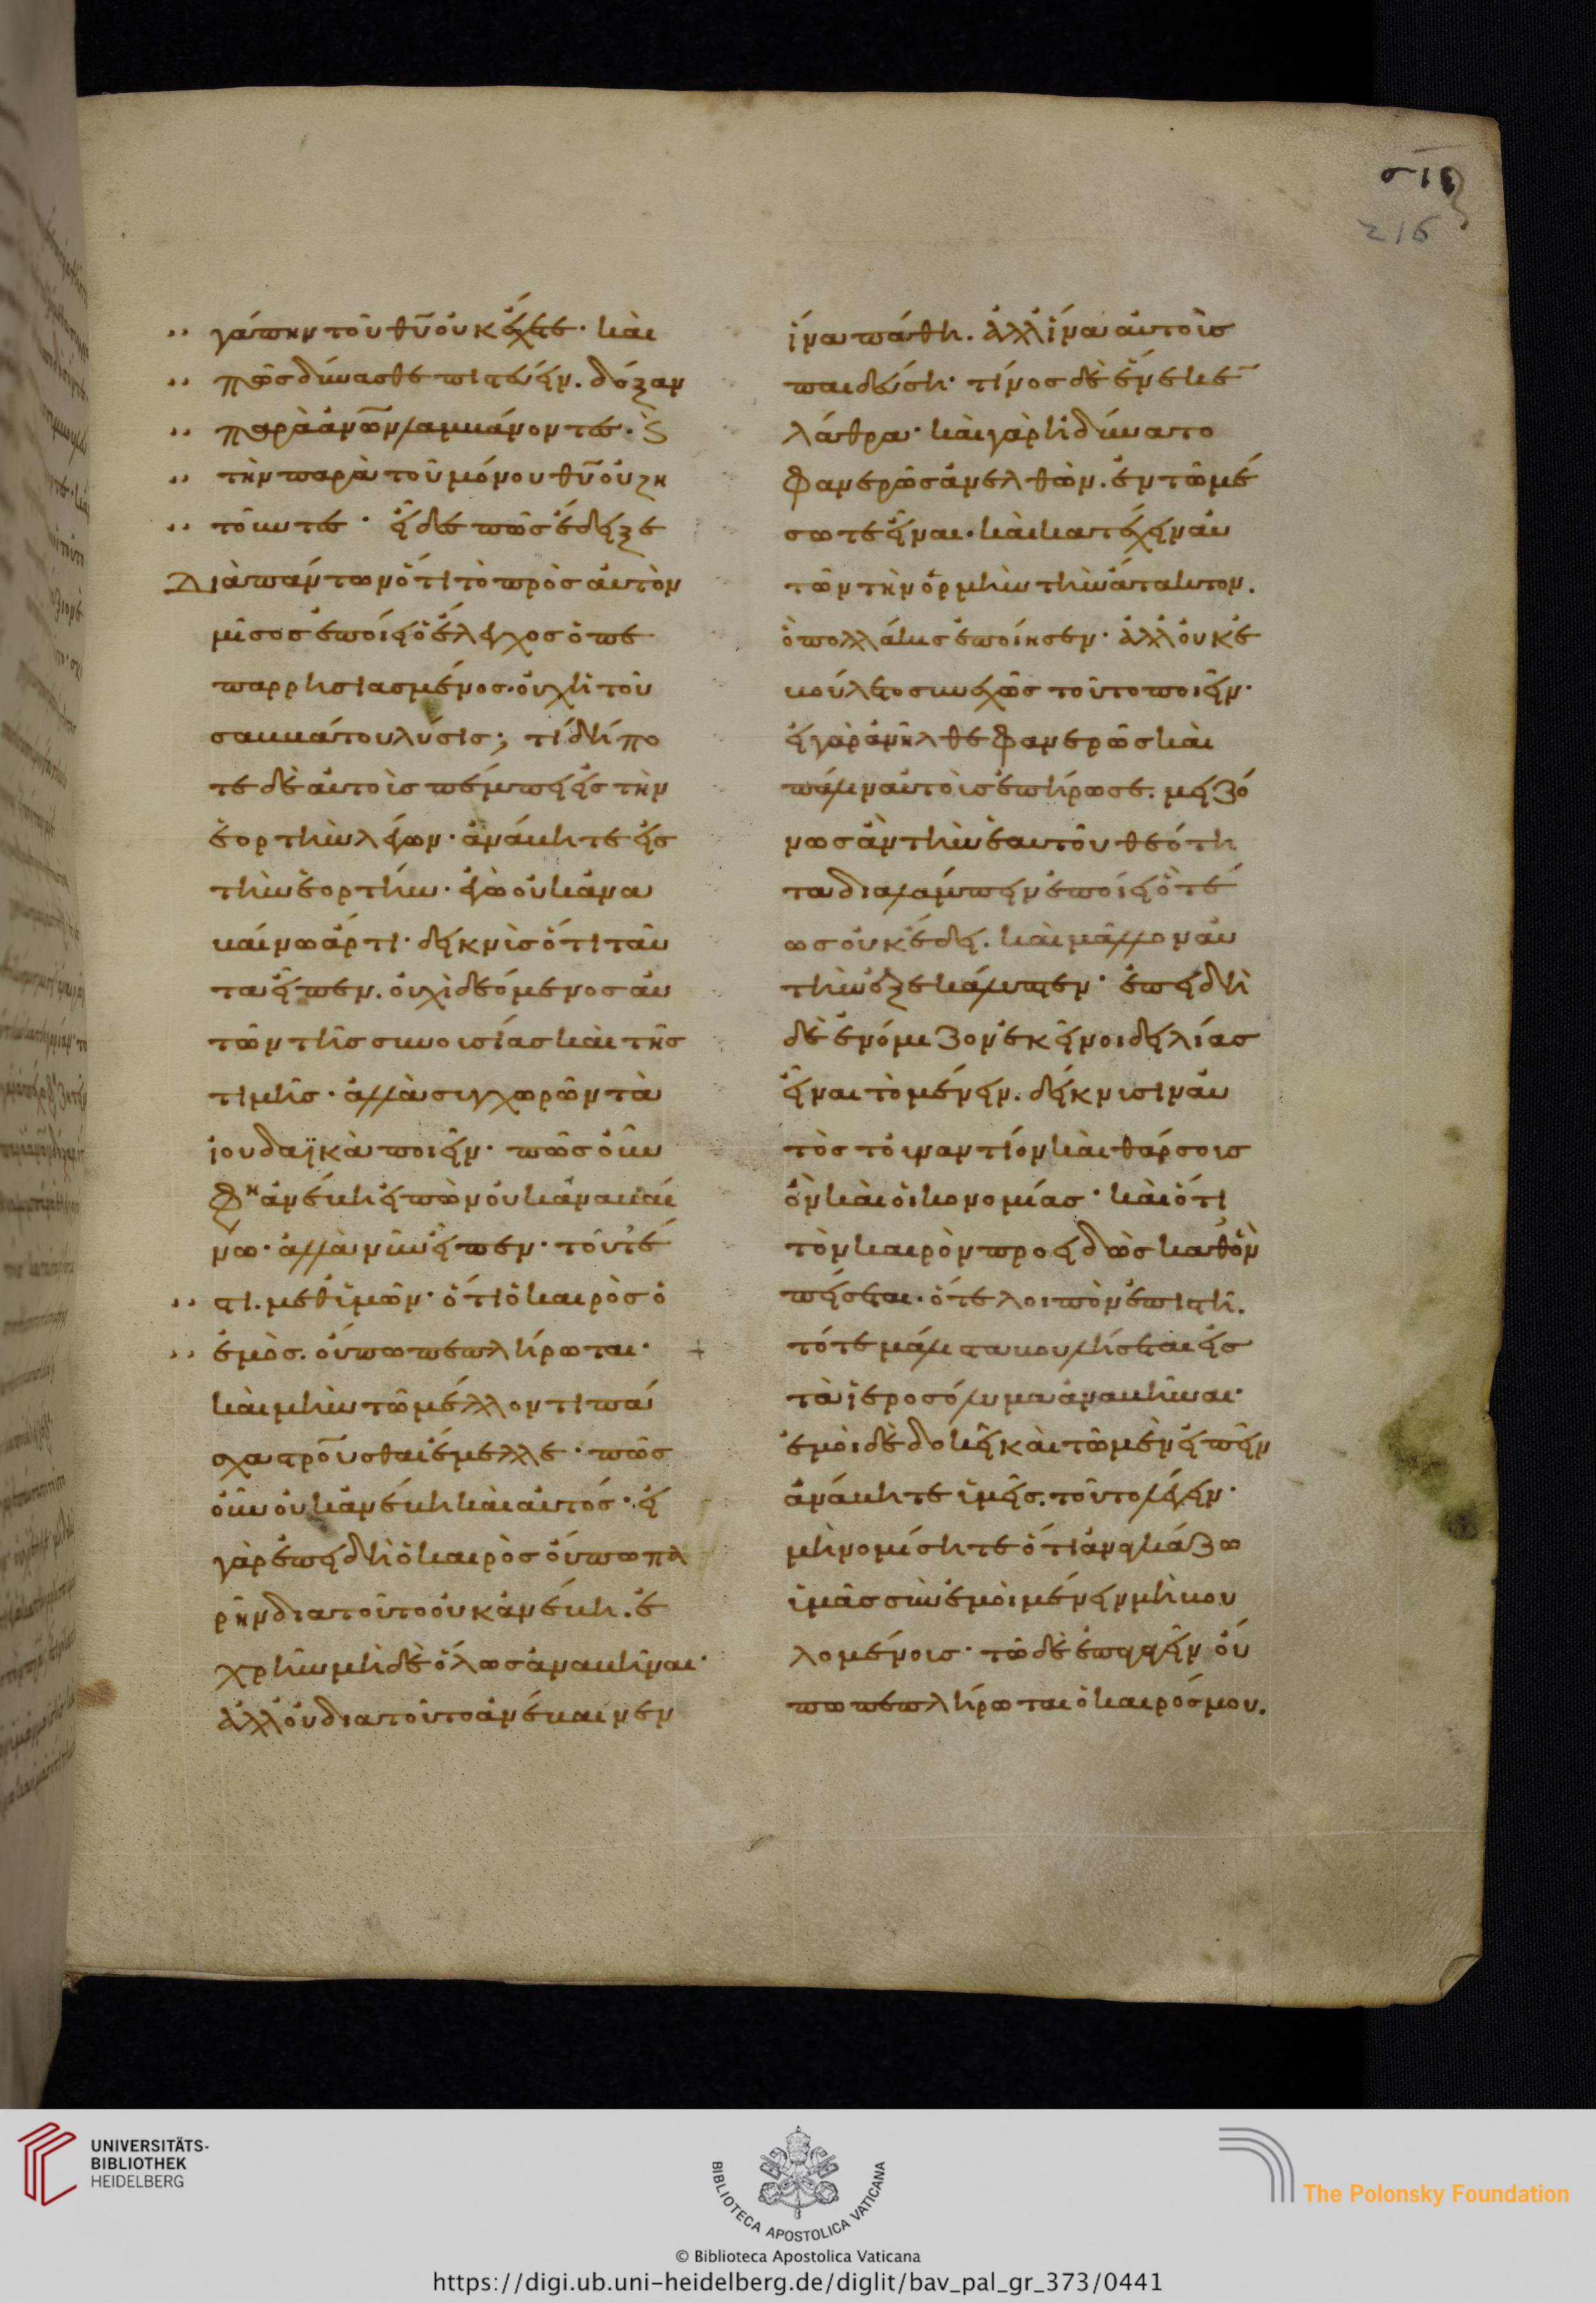 σιϛ
216
γάπην τοῦ θῦ οὐκ ἔχετε· καὶ
πῶς δύνασθε πιστεύειν. δόξαν
παρὰ ἀνῶν λαμβάνοντες. καὶ
τὴν παρὰ τοῦ μόνου θῦ οὐ ζη
τοῦντες· εἶδες πῶς ἔδειξε
Διὰ πάντων ὅτι τὸ πρὸς αὐτὸν
μῖσος ἐποίει ὁ ἔλεγχος ὁ πε
παρρησιασμένος. οὐχ ἡ τοῦ
σαββάτου λύσις; τί δήπο
τε δὲ αὐτοὺς πέμπει εἰς τὴν
ἑορτὴν λέγων· ἀνάβητε εἰς
τὴν ἑορτήν. ἐγὼ οὐκ ἀνα
βαίνω ἄρτι· δεικνὺς ὅτι ταῦ
τα εἶπεν. οὐχὶ δεόμενος αὐ
τῶν τῆς συνουσίας καὶ τῆς
τιμῆς· ἀλλὰ συγχωρῶν τὰ
ἰουδαϊκὰ ποιεῖν· πῶς οὖν
φη ἀνέβη εἰπὼν οὐκ ἀναβαί
νω· ἀλλὰ νῦν εἶπεν· τοῦτέ
στι. μεθ' ὑμῶν· ὅτι ὁ καιρὸς ὁ
ἐμὸς. οὔπω πεπλήρωται· +
καὶ μὴν τῷ μέλλοντι πά
σχα στροῦσθαι ἔμελλε· πῶς
οὖν οὐκ ἀνέβη καὶ αὐτός· εἰ
γὰρ ἐπειδὴ ὁ καιρὸς οὔπω πα
ρῆν διατοῦτο οὐκ ἀνέβη. ἐ
χρῆν μὴ δὲ ὅλως ἀναβῆναι·
ἀλλ' οὐ διατοῦτο ἀνέβαινεν
ἵνα πάθη. ἀλλ' ἵνα αὐτοὺς
παιδεύση· τίνος δὲ ἕνεκε
λάθρα· καὶ γὰρ ἠδύνατο
φανερῶς ἀνελθὼν. ἐν τῷ μέ
σω τε εἶναι· καὶ κατέχειν αὐ
τῶν τὴν ὁρμὴν τὴν ἄτακτον.
ὃ πολλάκις ἐποίησεν· ἀλλ' οὐκ ἐ
βούλετο συνεχῶς τοῦτο ποιεῖν·
εἰ γὰρ ἀνῆλθε φανερῶς καὶ
πάλιν αὐτοὺς ἐπήρωσε. μειζό
νως ἂν τὴν ἑαυτοῦ θεότη
τα διαλάμπειν ἐποίει ὁ τέ
ως οὐκ ἔδει. καὶ μᾶλλον αὐ
τὴν ἐξεκάλυπτεν· ἐπειδὴ
δὲ ἐνόμιζον ἐκεῖνοι δειλίας
εἶναι τὸ μένειν. δείκνυσιν αὐ
τὸς τὸ ἐναντίον καὶ θάρσους
ὂν καὶ οἰκονομίας· καὶ ὅτι
τὸν καιρὸν προειδὼς καθ' ὃν
πείσεται. ὅτε λοιπὸν ἐπιστῆ.
τότε μάλιστα βουλήσεται εἰς
τὰ ἱεροσόλυμα ἀναβῆναι·
ἐμοὶ δὲ δοκεῖ κὰι τῶ μὲν εἰπεῖν
ἀνάβητε ὑμεῖς. τοῦτο λέγειν·
μὴ νομίσητε ὅτι ἀναγκάζω
ὑμᾶς σὺν ἐμοὶ μένειν μὴ βου
λομένοις· τῶ δὲ ἐπαγαγεῖν οὔ
πω πεπλήρωται ὁ καιρός μου.
UNIVERSITÄTS-
BIBLIOTHEK
HEIDELBERG
BIBLIOTECA APOSTOLICA VATICANA
The Polonsky Foundation
© Biblioteca Apostolica Vaticana
https://digi.ub.uni-heidelberg.de/diglit/bav_pal_gr_373/0441